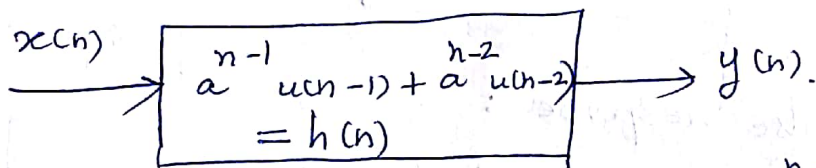 x(n)
a^{n-1} u(n-1) + a^{n-2} u(n-2)
= h(n)
y(n).
n